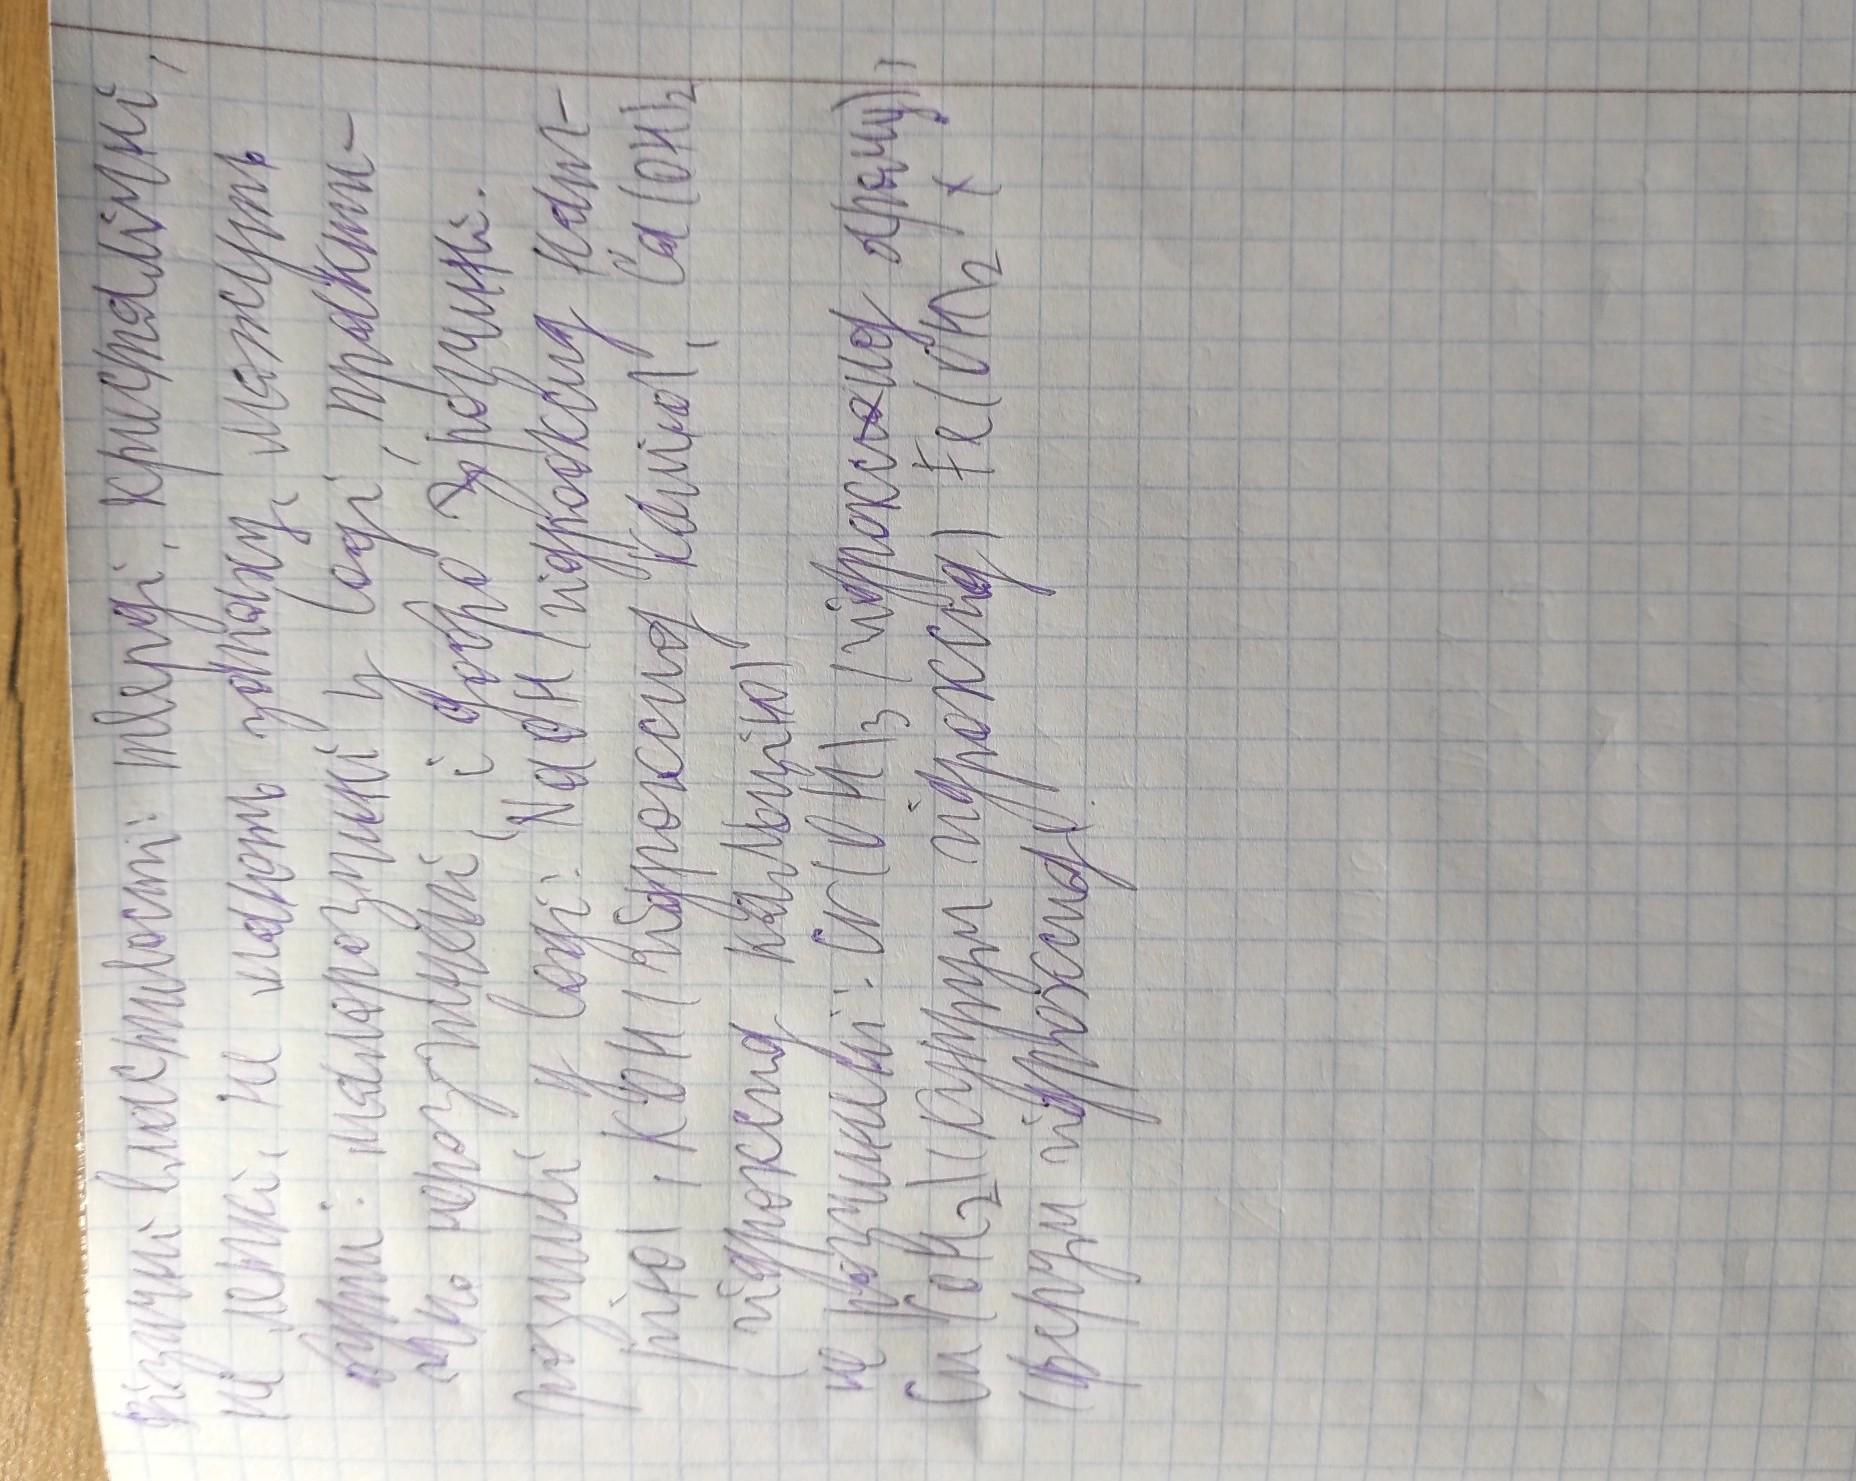 Фізичні властивості: тверді, кристалічні,
не леткі, не мають запаху, можуть
бути: малорозчинні у воді, практи-
чно нерозчинні і добро розчинні.
розчинні у воді: NaOH (гідроксид нат-
рію), KOH (гідроксид калію), Ca(OH)2
(гідроксид кальцію)
не розчинні: Cr(OH)3 (гідроксид хрому),
Cu(OH)2 (купрум гідроксид) Fe(OH)2
(ферум гідроксид).